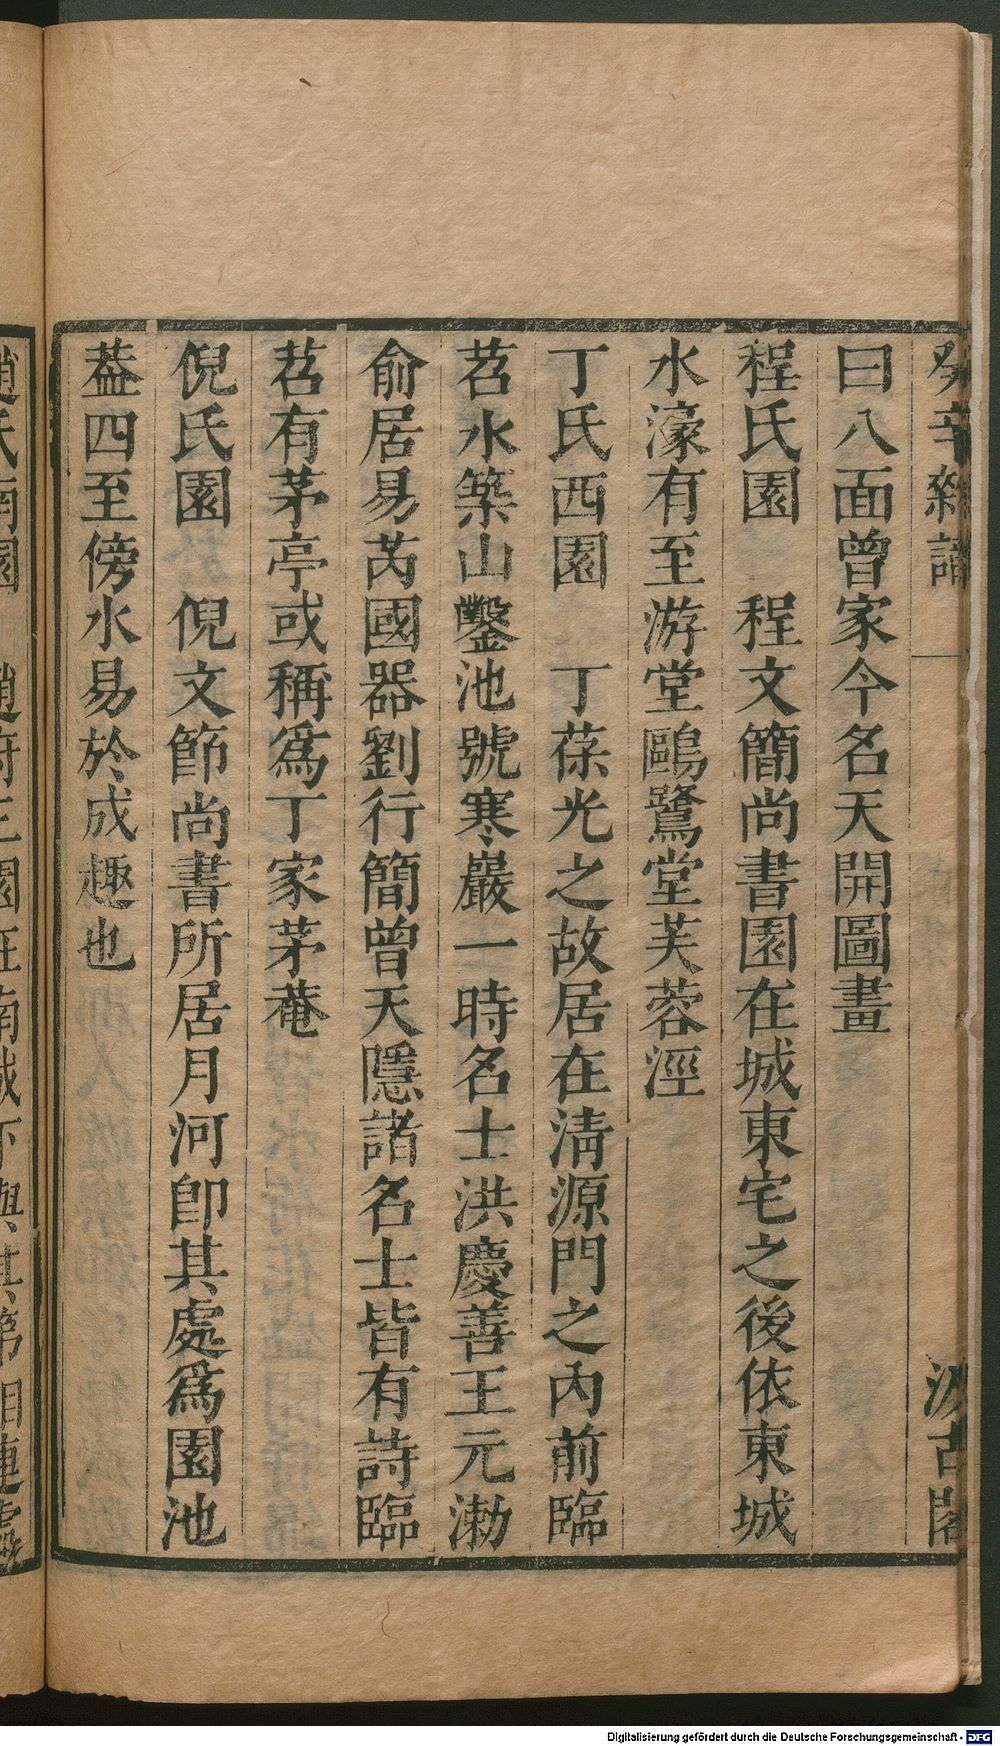 癸辛雜識 一 汲古閣
曰八面曾家今名天開圖畫
程氏園　程文簡尚書園在城東宅之後依東城
水濠有至游堂鷗鷺堂芙蓉涇
丁氏西園　丁葆光之故居在淸源門之內前臨
苕水築山鑿池號寒巖一時名士洪慶善王元渤
俞居易芮國器劉行簡曾天隱諸名士皆有詩臨
苕有茅亭或稱爲丁家茅菴
倪氏園　倪文節尚書所居月河卽其處爲園池
葢四至傍水易於成趣也
趙氏南園　趙府三園在南城下與其第相連處
Digitalisierung gefördert durch die Deutsche Forschungsgemeinschaft - DFG